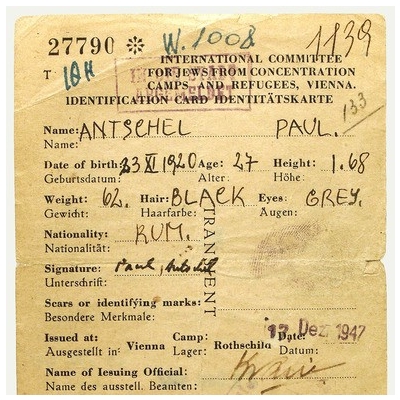 27790 ✻ W. 1008 1139
INTERNATIONAL COMMITTEE
T FOR JEWS FROM CONCENTRATION
CAMPS AND REFUGEES, VIENNA.
IDENTIFICATION CARD IDENTITÄTSKARTE
133
Name: ANTSCHEL PAUL.
Name:
Date of birth: 23 XI 1920 Age: 27 Height: 1.68
Geburtsdatum: Alter: Höhe:
Weight: 62. Hair: BLACK Eyes: GREY.
Gewicht: Haarfarbe: Augen:
TRANSIENT
Nationality: RUM.
Nationalität:
Signature: Paul Antschel
Unterschrift:
Scars or identifying marks:
Besondere Merkmale:
Issued at: Vienna Camp: Rothschild Date: 17 Dez. 1947
Ausgestellt in: Lager: Datum:
Name of Iesuing Official:
Name des ausstell. Beamten: